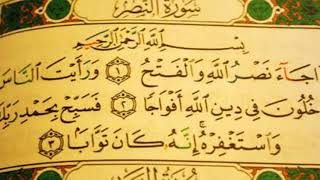 سُورَةُ النَّصْرِ
بِسْمِ اللَّهِ الرَّحْمَٰنِ الرَّحِيمِ
ذَا جَآءَ نَصْرُ اللَّهِ وَالْفَتْحُ ١ وَرَأَيْتَ النَّاسَ
خُلُونَ فِى دِينِ اللَّهِ أَفْوَاجًا ٢ فَسَبِّحْ بِحَمْدِ رَبِّكَ
وَاسْتَغْفِرْهُ ۚ إِنَّهُ كَانَ تَوَّابًا ٣